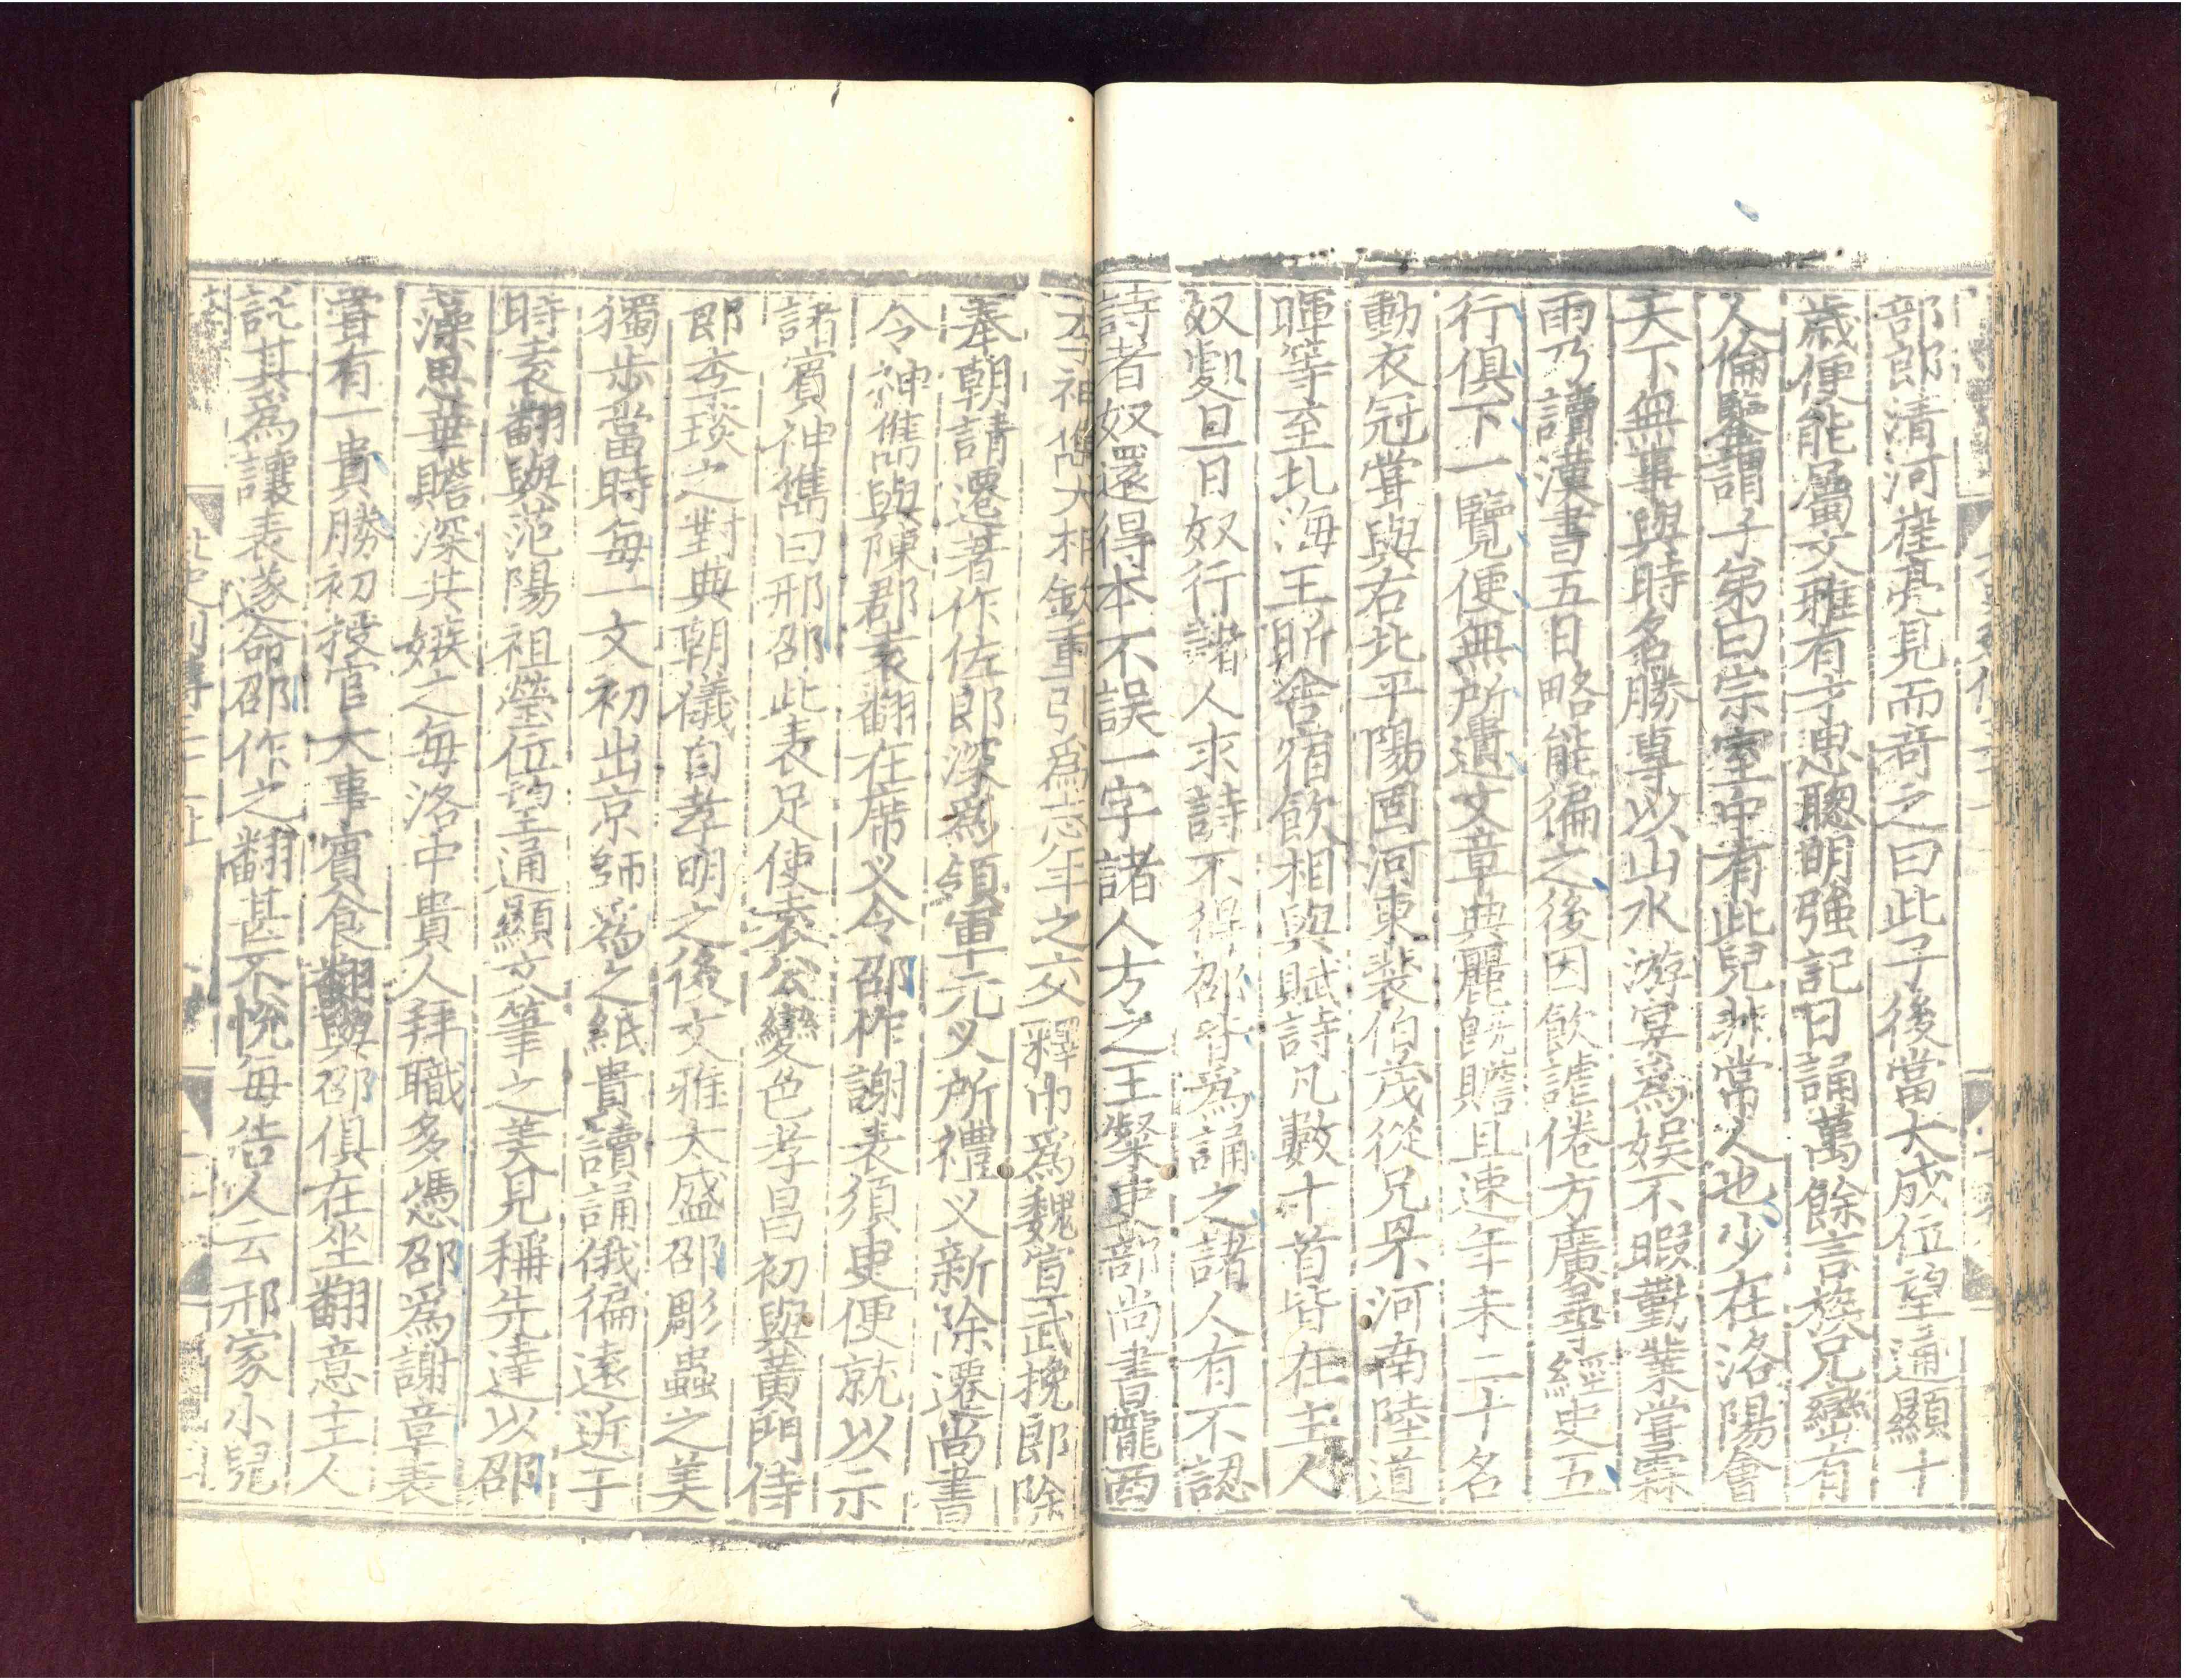 部郎清河崔亮見而奇之曰此子後當大成位望通顯十
歲便能屬文雅有才思聰明強記日誦萬餘言族兄巒有
人倫鑒謂子弟曰宗室中有此兒非常人也少在洛陽會
天下無事與時名勝專以山水游宴爲娛不暇勤業嘗霖
雨乃讀漢書五日略能徧之後因飲謔倦方廣尋經史五
行俱下一覽便無所遺文章典麗旣贍且速年未二十名
動衣冠嘗與右北平陽固河東裴伯茂從兄罘河南陸道
暉等至北海王昕舍宿飲相與賦詩凡數十首皆在主人
奴處旦日奴行諸人求詩不得邵皆爲誦之諸人有不認
詩者奴還得本不誤一字諸人方之王粲吏部尚書隴西
李神儁大相欽重引爲忘年之交釋巾爲魏宣武挽郎除
奉朝請遷著作佐郎深爲領軍元乂所禮乂新除遷尚書
令神儁與陳郡袁翻在席乂令邵作謝表須臾便就以示
諸賓神儁曰邢邵此表足使袁公變色孝昌初與黃門侍
郎李琰之對典朝儀自孝明之後文雅大盛邵彫蟲之美
獨步當時每一文初出京師爲之紙貴讀誦俄徧遠近于
時袁翻與范陽祖瑩位望通顯文筆之美見稱先達以邵
藻思華贍深共嫉之每洛中貴人拜職多憑邵爲謝章表
嘗有一貴勝初授官大事賓食翻與邵俱在坐翻意主人
託其爲讓表遂命邵作之翻甚不悅每告人云邢家小兒